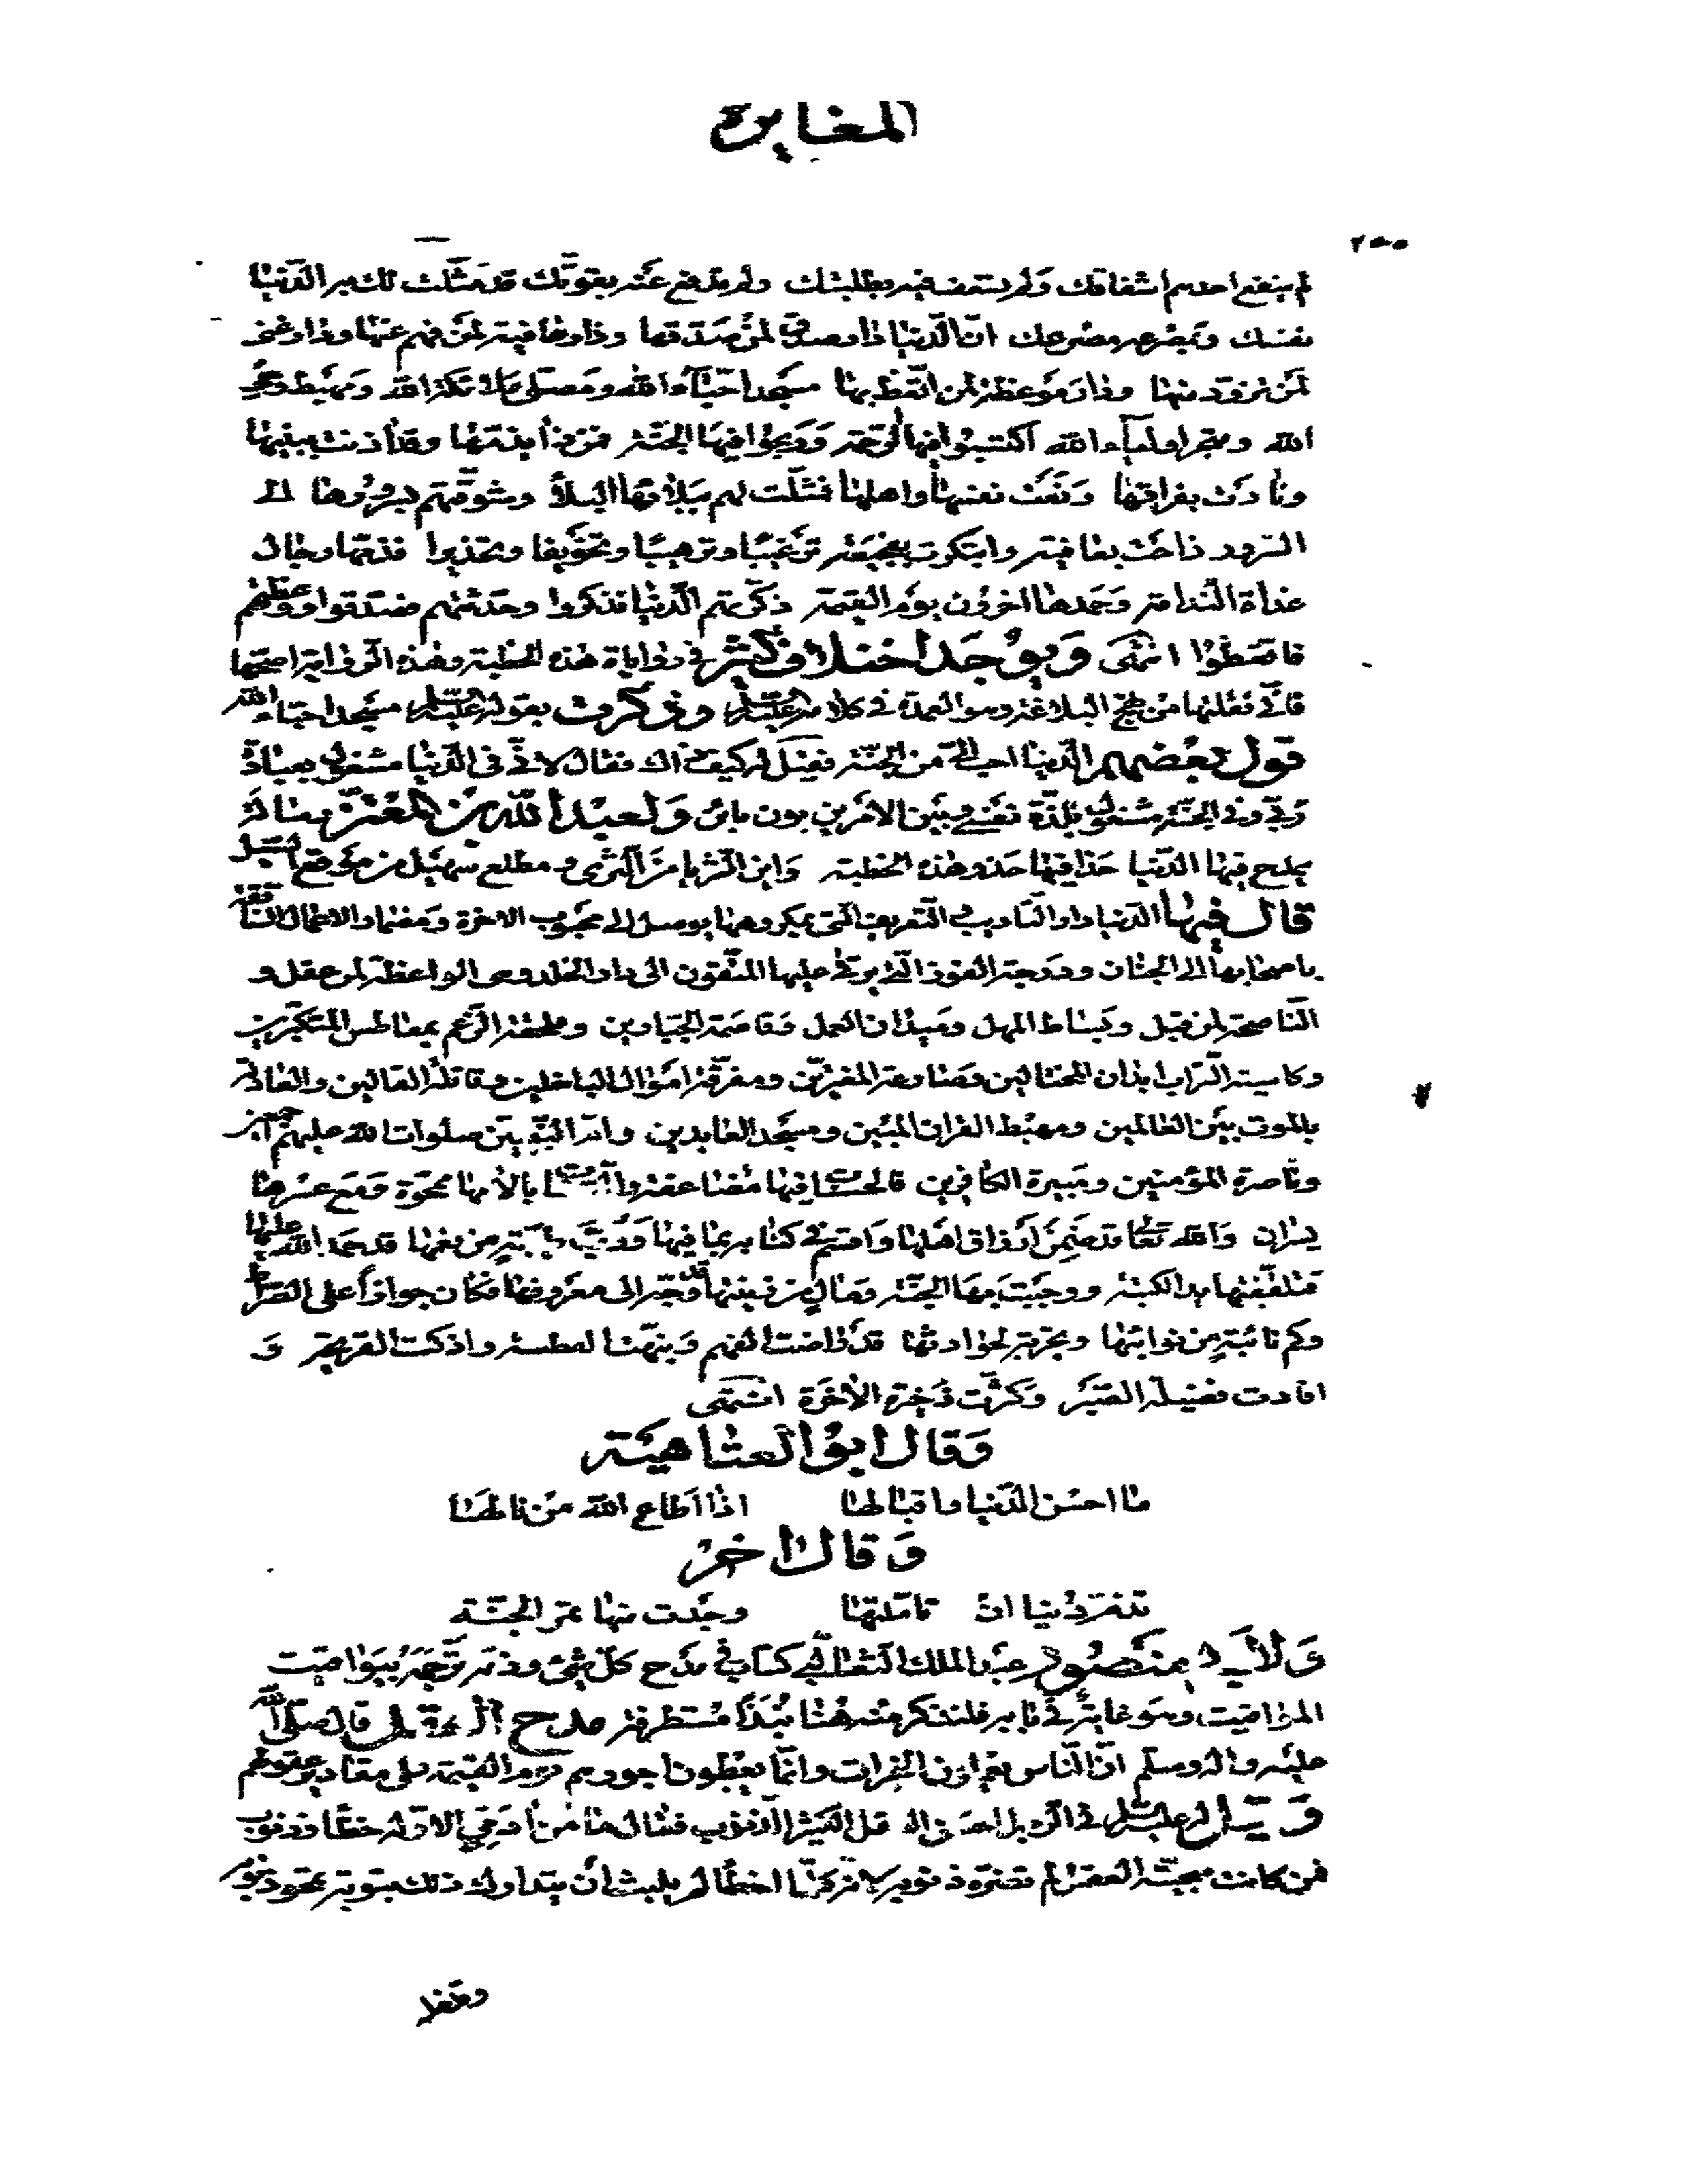 المغايرة
٢٥٥
لم ينفع احدهم اشفاقك ولم تسعف فيه بطلبتك ولم تدفع عنه بقوتك قد مثلت لك به الدنيا
نفسك وبمصرعه مصرعك ان الدنيا دار صدق لمن صدقها ودار عافية لمن فهم عنها ودار غنى
لمن تزود منها ودار موعظة لمن اتعظ بها مسجد احباء الله ومصلى ملائكة الله ومهبط وحي
الله ومتجر اولياء الله اكتسبوا فيها الرحمة وربحوا فيها الجنة فمن ذا يذمها وقد اذنت ببينها
ونادت بفراقها ونعت نفسها واهلها فمثلت لهم ببلائها البلاء وشوقتهم بسرورها الى
السرور راحت بعافية وابتكرت بفجيعة ترغيبا وترهيبا وتخويفا وتحذيرا فذمها رجال
غداة الندامة وحمدها اخرون يوم القيمة ذكرتهم الدنيا فذكروا وحدثتهم فصدقوا ووعظتهم
فاتعظوا انتهى ويوجد اختلاف كثير في روايات هذه الخطبة وهذه الرواية اصحها
فاني نقلتها من نهج البلاغة وهو العمدة في كلامه عليه السلم وذكرت بقوله عليه السلم مسجد احباء الله
قول بعضهم الدنيا احب الي من الجنة فقيل له كيف ذاك فقال لاني في الدنيا مشغول بعبادة
ربي وفي الجنة مشغول بلذة نفسي وبين الامرين بون بائن ولعبد الله بن المعتز رسالة
يمدح فيها الدنيا حذا فيها حذو هذه الخطبة واين الثريا من الثرى ومطلع سهيل من موقع السيل
قال فيها الدنيا دار التاديب والتعريف التي بمكروهها يوصل الى محبوب الاخرة ومضمار الاعمال السابقة
باصحابها الى الجنان ودرجة الفوز التي يرتقي عليها المتقون الى دار الخلد وهي الواعظة لمن عقل و
الناصحة لمن قبل وبساط المهل وميدان العمل وقاصمة الجبارين وملحقة الرغم بمعاطس المتكبرين
وكاسية التراب ابدان المختالين وصارعة المغترين ومفرقة اموال الباخلين وقاتلة القاتلين والعادلة
بالموت بين العالمين ومهبط القران المبين ومسجد العابدين وام النبيين صلوات الله عليهم اجمعين
وناصرة المؤمنين ومبيرة الكافرين فالحسنات فيها مضاعفة والسيئات بالامها ممحوة ومع عسرها
يسران والله تعالى قد ضمن ارزاق اهلها واقسم في كتابه بما فيها ورب طيبة من نعمها قد حمد الله عليها
فتلقفتها يد الكتبة ووجبت بها الجنة ومال من زينتها قد وجه الى معروفها فكان جوازا على الصراط
وكم نائبة من نوائبها وتجربة لحوادثها قد راضت الفهم ونبهت الفطنة واذكت القريحة و
افادت فضيلة الصبر وكثرت ذخيرة الاخرة انتهى
وقال ابو العتاهية
ما احسن الدنيا واقبالها اذا اطاع الله من نالها
وقال اخر
دنياان تاملتها وجدت منها ثمر الجنة
ولابي منصور عبد الملك الثعالبي كتاب في مدح كل شيء وذمه ترجمه بيواقيت
المواقيت وهو غاية في بابه فلنذكر منه هنا نبذا مستطرفة مدح العقل قال صلى الله
عليه واله وسلم ان الناس يعملون الخيرات وانما يعطون اجورهم يوم القيمة على مقادير عقولهم
فمن كانت سجيته العقل لم تضره ذنوبه لانه كلما اخطا لم يلبث ان يتدارك ذلك بتوبة تمحو ذنوبه